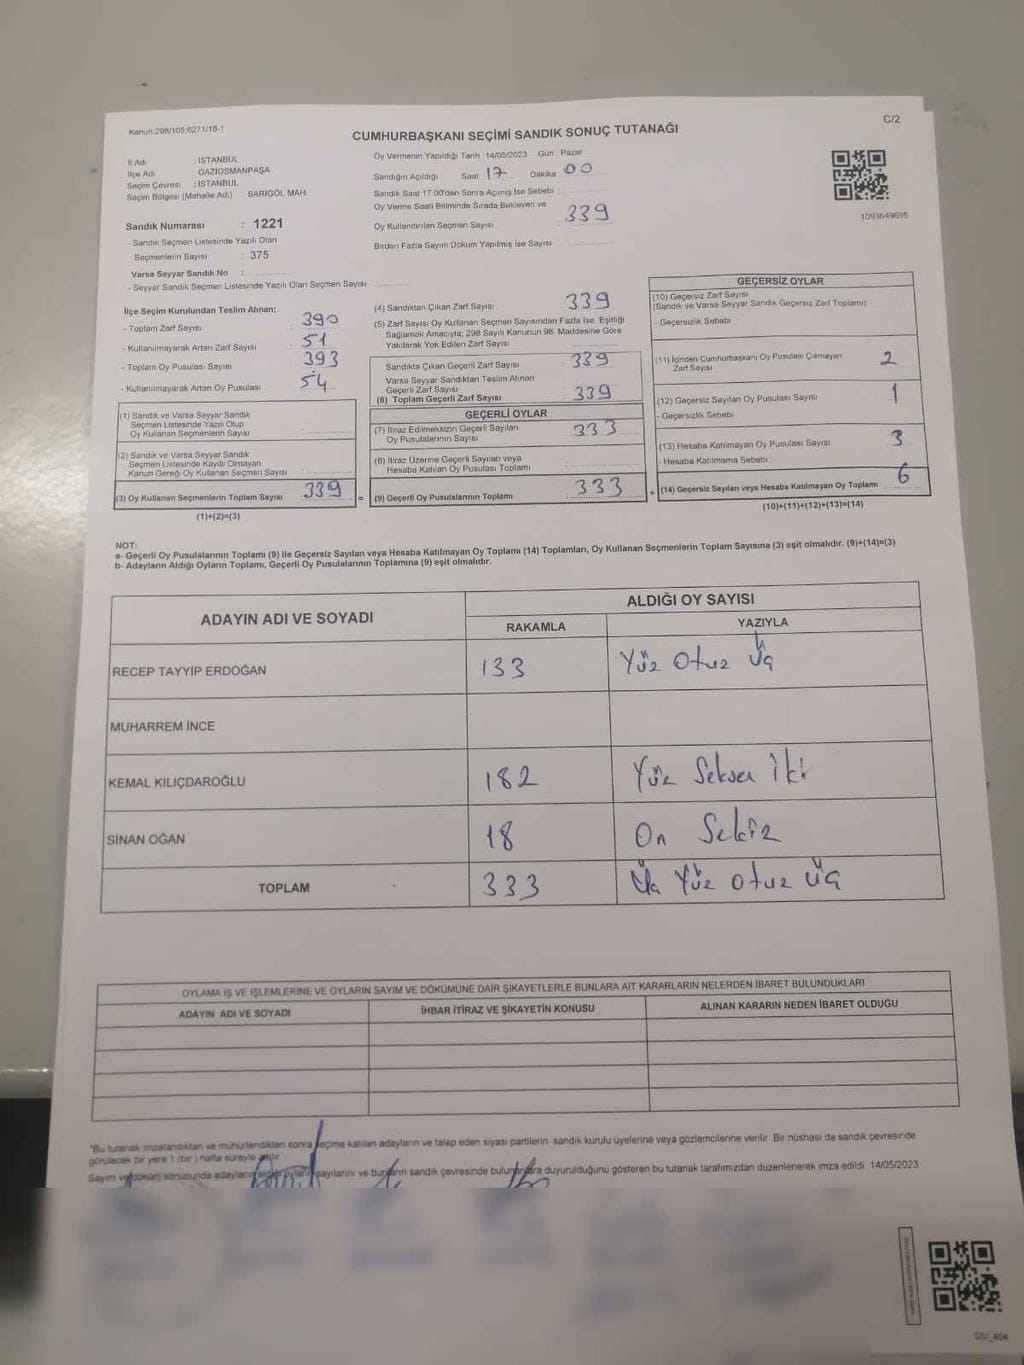 Kanun:298/105;6271/18-1
C/2
CUMHURBAŞKANI SEÇİMİ SANDIK SONUÇ TUTANAĞI
İl Adı : İSTANBUL
İlçe Adı : GAZİOSMANPAŞA
Seçim Çevresi : İSTANBUL
Seçim Bölgesi (Mahalle Adı) : SARIGÖL MAH.
Sandık Numarası : 1221
- Sandık Seçmen Listesinde Yazılı Olan
Seçmenlerin Sayısı : 375
Varsa Seyyar Sandık No :
- Seyyar Sandık Seçmen Listesinde Yazılı Olan Seçmen Sayısı
Oy Vermenin Yapıldığı Tarih :14/05/2023 Gün : Pazar
Sandığın Açıldığı Saat : 17 Dakika : 00
Sandık Saat 17.00'den Sonra Açılmış İse Sebebi :
Oy Verme Saati Bitiminde Sırada Bekleyen ve
Oy Kullandırılan Seçmen Sayısı : 339
Birden Fazla Sayım Döküm Yapılmış İse Sayısı :
1093649695
İlçe Seçim Kurulundan Teslim Alınan;
- Toplam Zarf Sayısı : 390
- Kullanılmayarak Artan Zarf Sayısı : 51
- Toplam Oy Pusulası Sayısı : 393
- Kullanılmayarak Artan Oy Pusulası : 54
(1) Sandık ve Varsa Seyyar Sandık
Seçmen Listesinde Yazılı Olup
Oy Kullanan Seçmenlerin Sayısı
(2) Sandık ve Varsa Seyyar Sandık
Seçmen Listesinde Kayıtlı Olmayan
Kanun Gereği Oy Kullanan Seçmen Sayısı
(3) Oy Kullanan Seçmenlerin Toplam Sayısı 339
(1)+(2)=(3)
(4) Sandıktan Çıkan Zarf Sayısı : 339
(5) Zarf Sayısı Oy Kullanan Seçmen Sayısından Fazla İse, Eşitliği
Sağlamak Amacıyla; 298 Sayılı Kanunun 98. Maddesine Göre
Yakılarak Yok Edilen Zarf Sayısı :
Sandıkta Çıkan Geçerli Zarf Sayısı : 339
Varsa Seyyar Sandıktan Teslim Alınan
Geçerli Zarf Sayısı
(6) Toplam Geçerli Zarf Sayısı : 339
GEÇERLİ OYLAR
(7) İtiraz Edilmeksizin Geçerli Sayılan
Oy Pusulalarının Sayısı : 333
(8) İtiraz Üzerine Geçerli Sayılan veya
Hesaba Katılan Oy Pusulası Toplamı
= (9) Geçerli Oy Pusulalarının Toplamı : 333
GEÇERSİZ OYLAR
(10) Geçersiz Zarf Sayısı
(Sandık ve Varsa Seyyar Sandık Geçersiz Zarf Toplamı)
- Geçersizlik Sebebi
(11) İçinden Cumhurbaşkanı Oy Pusulası Çıkmayan
Zarf Sayısı 2
(12) Geçersiz Sayılan Oy Pusulası Sayısı 1
- Geçersizlik Sebebi
(13) Hesaba Katılmayan Oy Pusulası Sayısı 3
- Hesaba Katılmama Sebebi :
+ (14) Geçersiz Sayılan veya Hesaba Katılmayan Oy Toplamı 6
(10)+(11)+(12)+(13)=(14)
NOT:
a- Geçerli Oy Pusulalarının Toplamı (9) ile Geçersiz Sayılan veya Hesaba Katılmayan Oy Toplamı (14) Toplamları, Oy Kullanan Seçmenlerin Toplam Sayısına (3) eşit olmalıdır. (9)+(14)=(3)
b- Adayların Aldığı Oyların Toplamı, Geçerli Oy Pusulalarının Toplamına (9) eşit olmalıdır.
ADAYIN ADI VE SOYADI
ALDIĞI OY SAYISI
RAKAMLA YAZIYLA
RECEP TAYYİP ERDOĞAN 133 Yüz Otuz üç
MUHARREM İNCE
KEMAL KILIÇDAROĞLU 182 Yüz Seksen iki
SİNAN OĞAN 18 On Sekiz
TOPLAM 333 Üç Yüz otuz üç
OYLAMA İŞ VE İŞLEMLERİNE VE OYLARIN SAYIM VE DÖKÜMÜNE DAİR ŞİKAYETLERLE BUNLARA AİT KARARLARIN NELERDEN İBARET BULUNDUKLARI
ADAYIN ADI VE SOYADI İHBAR İTİRAZ VE ŞİKAYETİN KONUSU ALINAN KARARIN NEDEN İBARET OLDUĞU
"Bu tutanak imzalandıktan ve mühürlendikten sonra seçime katılan adayların ve talep eden siyasi partilerin sandık kurulu üyelerine veya gözlemcilerine verilir. Bir nüshası da sandık çevresinde
görülecek bir yere 1 (bir ) hafta süreyle asılır
Sayım ve döküm sonucunda adayların aldığı oyların sayılarını ve bunların sandık çevresinde bulunanlara duyurulduğunu gösteren bu tutanak tarafımızdan düzenlenerek imza edildi. 14/05/2023